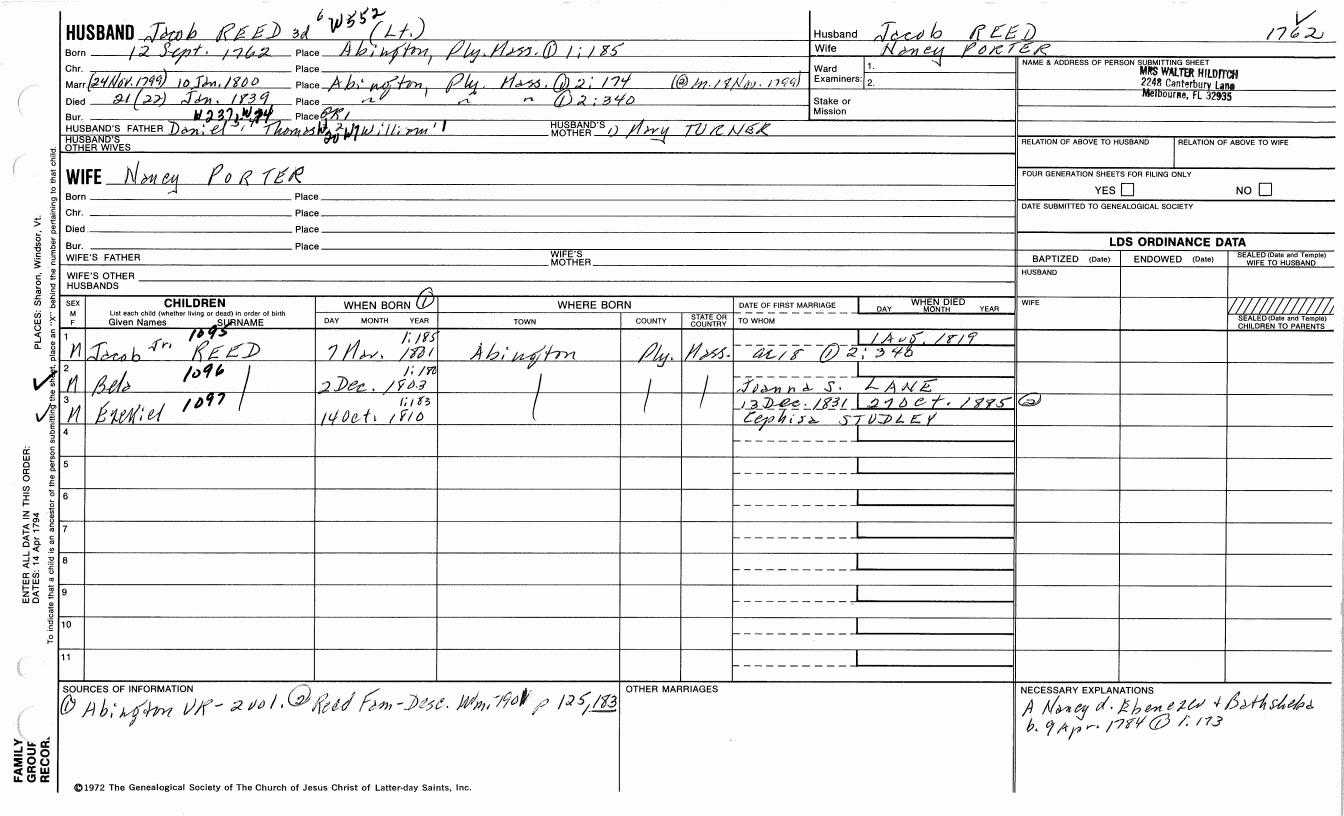 HUSBAND Jacob REED 3d 6 W552 (Lt.)
Born 12 Sept. 1762 Place Abington, Ply. Mass. ① 1:185
Chr. Place
Marr. (24 Nov. 1799) 10 Jan. 1800 Place Abington, Ply. Mass. ① 2:174 (② m. 18 Nov. 1799)
Died 21 (22) Jan. 1839 Place " " " ① 2:340
Bur. Place
HUSBAND'S FATHER Daniel Thomas William HUSBAND'S MOTHER Mary TURNER
HUSBAND'S OTHER WIVES
WIFE Nancy PORTER
Born Place
Chr. Place
Died Place
Bur. Place
WIFE'S FATHER WIFE'S MOTHER
WIFE'S OTHER HUSBANDS
Husband Jacob REED 1762
Wife Nancy PORTER
Ward Examiners: 1. 2.
Stake or Mission
NAME & ADDRESS OF PERSON SUBMITTING SHEET
MRS WALTER HILDITCH
2248 Canterbury Lane
Melbourne, FL 32935
RELATION OF ABOVE TO HUSBAND RELATION OF ABOVE TO WIFE
FOUR GENERATION SHEETS FOR FILING ONLY
YES NO
DATE SUBMITTED TO GENEALOGICAL SOCIETY
LDS ORDINANCE DATA
BAPTIZED (Date) ENDOWED (Date) SEALED (Date and Temple) WIFE TO HUSBAND
HUSBAND
WIFE
SEALED (Date and Temple) CHILDREN TO PARENTS
SEX M F CHILDREN WHEN BORN ① WHERE BORN DATE OF FIRST MARRIAGE WHEN DIED
List each child (whether living or dead) in order of birth
Given Names SURNAME DAY MONTH YEAR TOWN COUNTY STATE OR COUNTRY TO WHOM DAY MONTH YEAR
1 1095 1:185 1 Aug. 1819
M Jacob Jr. REED 7 Mar. 1801 Abington Ply. Mass. ae 18 ① 2:340
2 1096 1:180
M Bela 2 Dec. 1803 Joanna S. LANE
3 1097 1:183 13 Dec. 1831 27 Oct. 1885 ②
M Ezekiel 14 Oct. 1810 Cephisa STUDLEY
4
5
6
7
8
9
10
11
SOURCES OF INFORMATION
① Abington VR - 2 vol. ② Reed Fam-Desc. Wm. 1901 p 125, 183
OTHER MARRIAGES
NECESSARY EXPLANATIONS
A Nancy d. Ebenezer + Bathsheba
b. 9 Apr. 1784 ① 1:173
©1972 The Genealogical Society of The Church of Jesus Christ of Latter-day Saints, Inc.
FAMILY GROUP RECOR.
ENTER ALL DATA IN THIS ORDER:
DATES: 14 Apr 1794
PLACES: Sharon, Windsor, Vt.
To indicate that a child is an ancestor of the person submitting the sheet, place an "X" behind the number pertaining to that child.